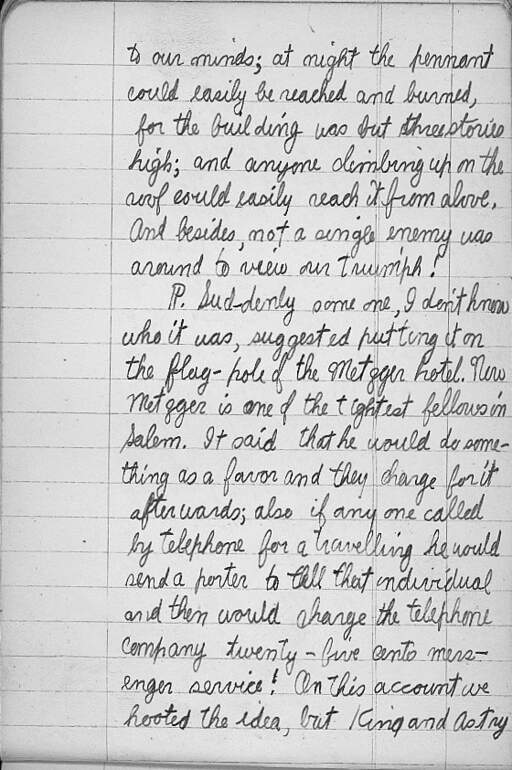 to our minds; at night the pennant
could easily be reached and burned,
for the building was but three stories
high; and anyone climbing up on the
roof could easily reach it from above.
And besides, not a single enemy was
around to view our triumph!
P. Suddenly some one, I don't know
who it was, suggested putting it on
the flag-pole of the Metzger hotel. Now
Metzger is one of the tightest fellows in
Salem. It said that he would do some-
thing as a favor and they charge for it
afterwards; also if any one called
by telephone for a travelling he would
send a porter to tell that individual
and then would charge the telephone
company twenty-five cents mess-
enger service! On this account we
hooted the idea, but King and Astry